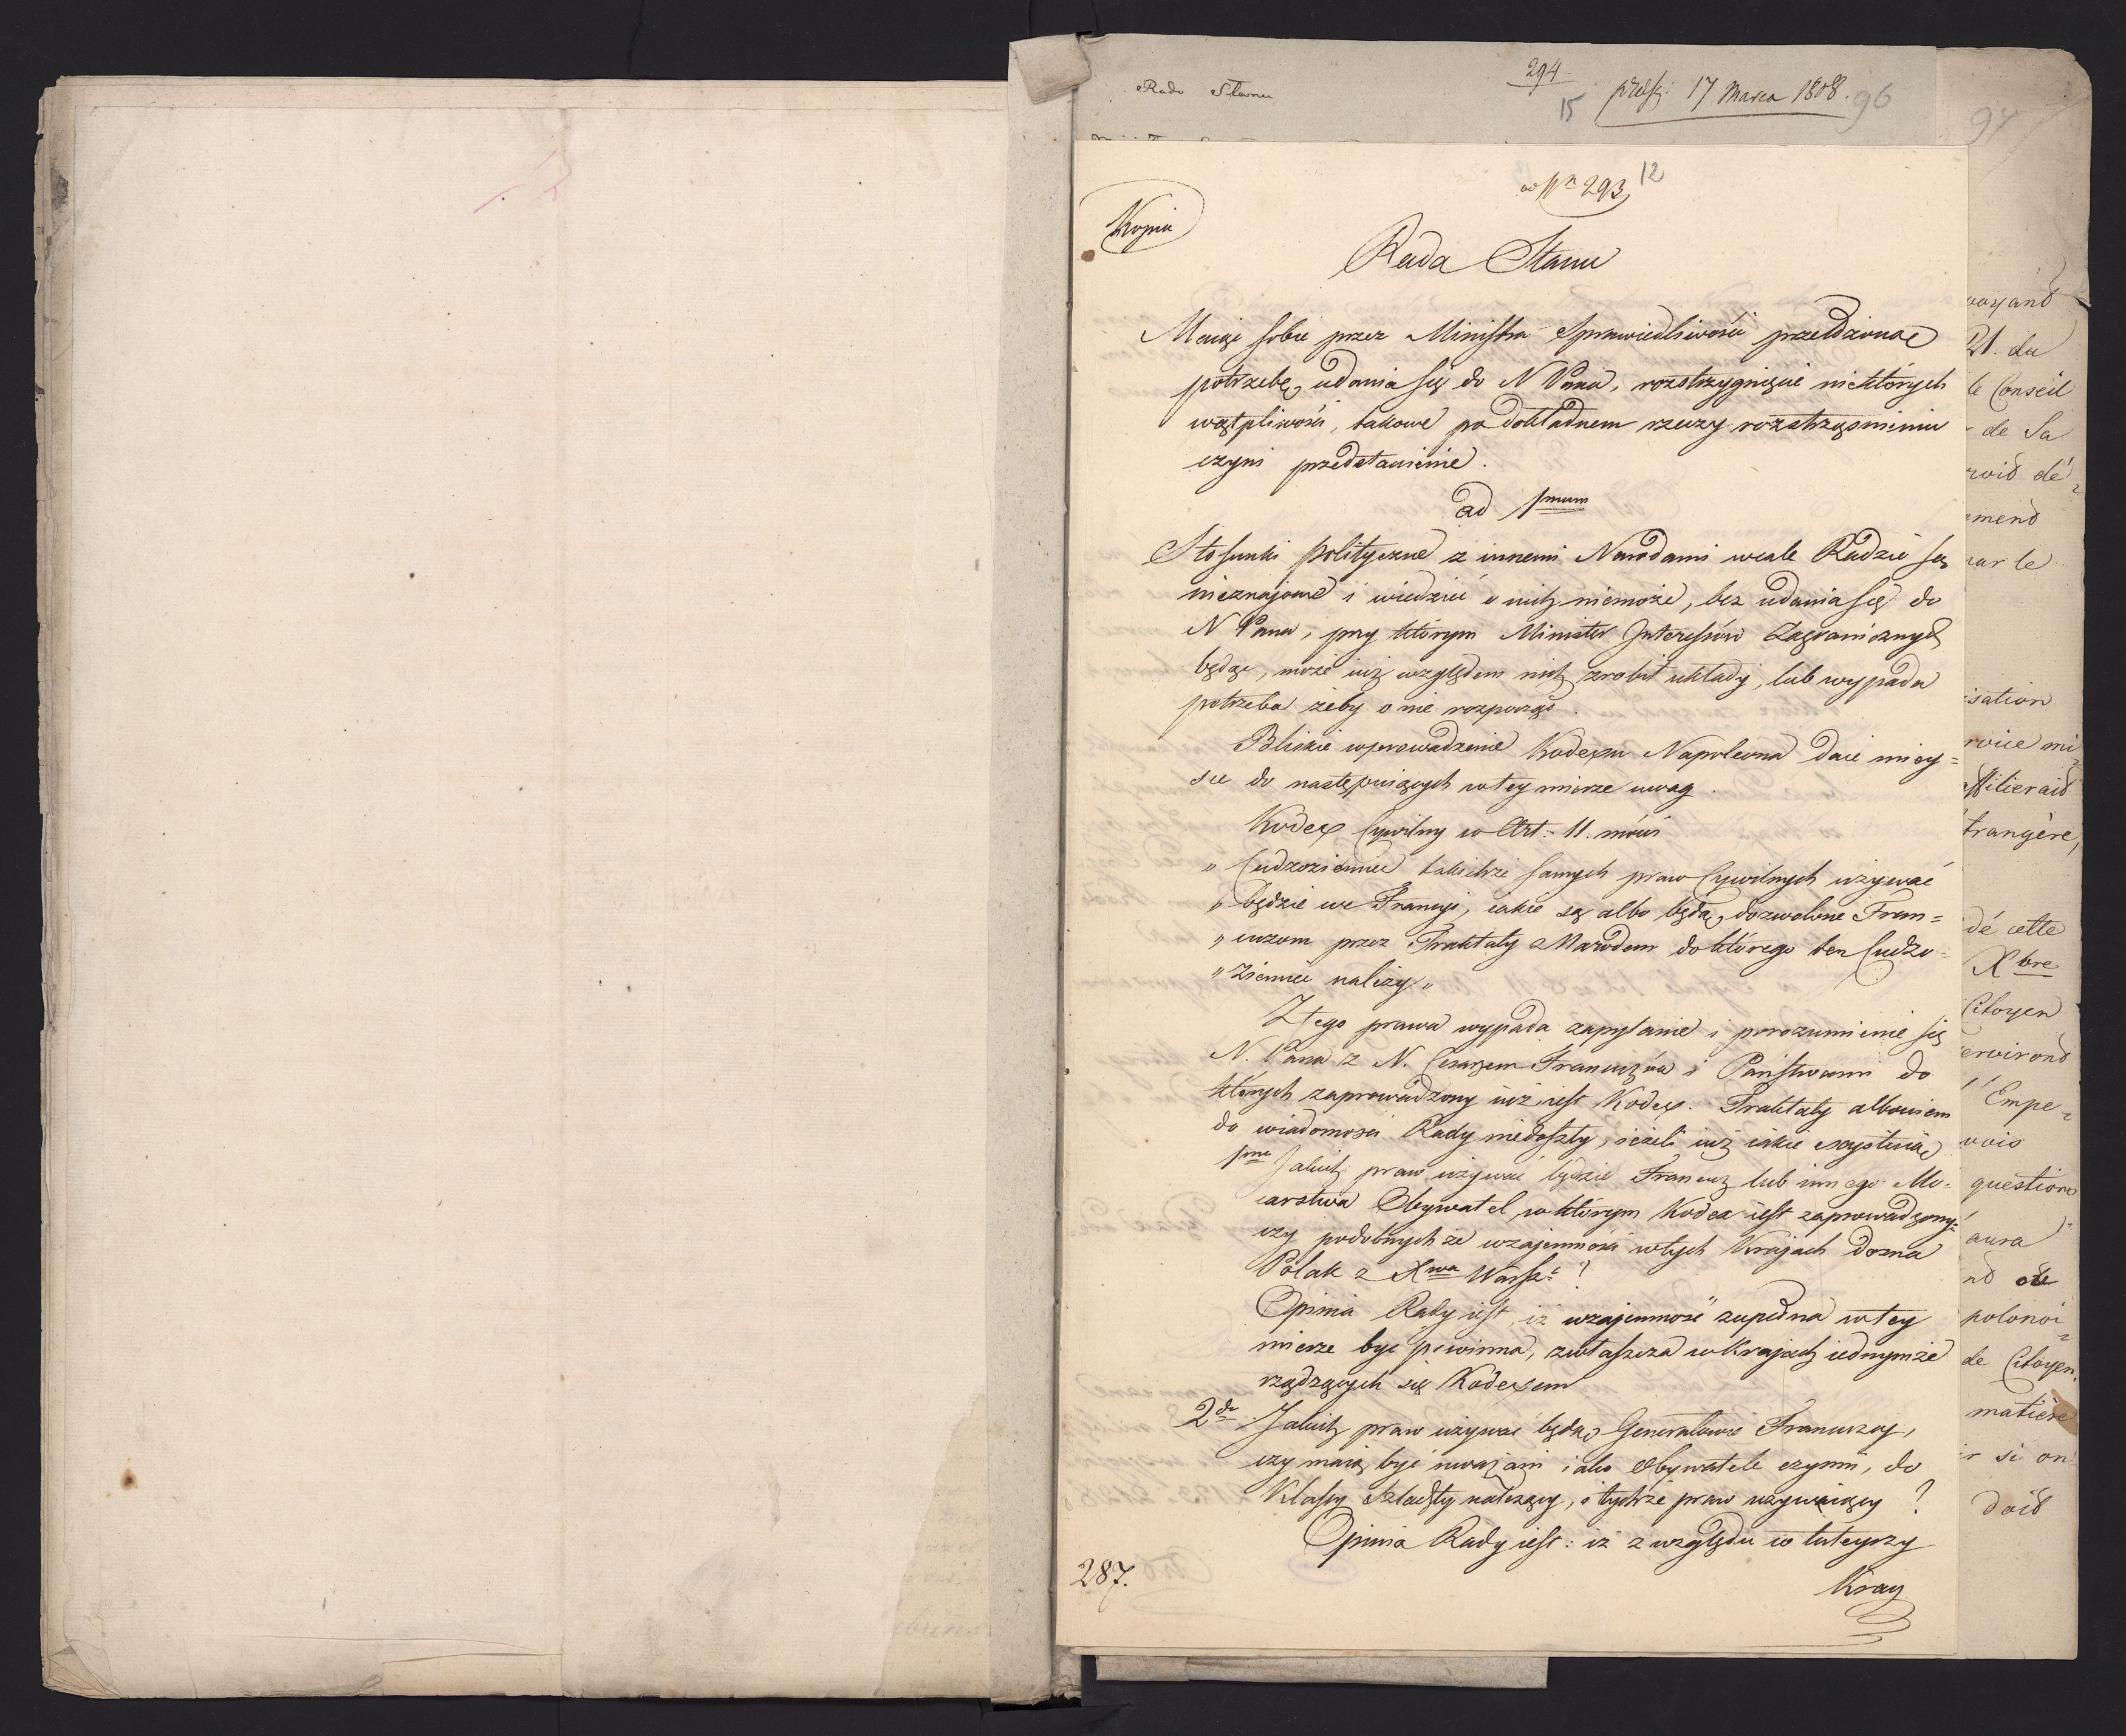 Rada Stanu
294
15
praes: 17 Marca 1808.
96
97
ad Nr 293
12
Kopia
Rada Stanu
Maiąc sobie przez Ministra Sprawiedliwości przełożoną
potrzebę, udania się do N Pana, rozstrzygnięcie niektórych
wątpliwości, takowe po dokładnem rzeczy roztrząśnieniu
czyni przedstawienie.
ad 1mum
Stosunki polityczne z innemi Narodami wcale Radzie są
nieznajome i wiedzieć o nich niemoże, bez udania się do
N Pana, przy którym Minister Interessów Zagranicznych
będąc, może iuż względem nich zrobił układy, lub wypada
potrzeba żeby o nie rozpocząć.
Bliskie wprowadzenie Kodexu Napoleona daie miey=
sce do następuiących w tey mierze uwag.
Kodex Cywilny w Art: 11. mówi
„ Cudzoziemiec takichże samych praw Cywilnych używać
„ będzie we Francyi, iakie są albo będą, dozwolone Fran=
„ cuzom przez Traktaty z Narodem do którego ten Cudzo=
„ ziemiec należy„
Z tego prawa wypada zapytanie i porozumienie się
N. Pana z N. Cesarzem Francuzów i Państwami do
których zaprowadzony iuż iest Kodex. Traktaty albowiem
do wiadomości Rady niedoszły, ieżeli iuż iakie exystuią
1mo Jakich praw używać będzie Francuz lub innego Mo=
carstwa Obywatel, w którym Kodex iest zaprowadzony=
czy podobnychże wzajemności w tych Krajach dozna
Polak z Xwa Warsz: ?
Opinia Rady iest, iż wzajemność zupełna w tey
mierze być powinna, zwłaszcza w Krajach iednymże
rządzących się Kodexem
2do Jakich praw używać będą Generałowie Francuzcy,
czy maią być uważani iako Obywatele czynni, do
Klassy Szlachty należący, i tychże praw używaiący ?
Opinia Rady iest: iż z względu iż tuteyszy
Kray
287.
21. du
le Conseil
de Sa
par le
trangère,
dé cette
Xbre
Citoyen
Empe=
question
aura
polonoi=
de Citoyen.
matière
si on
doit